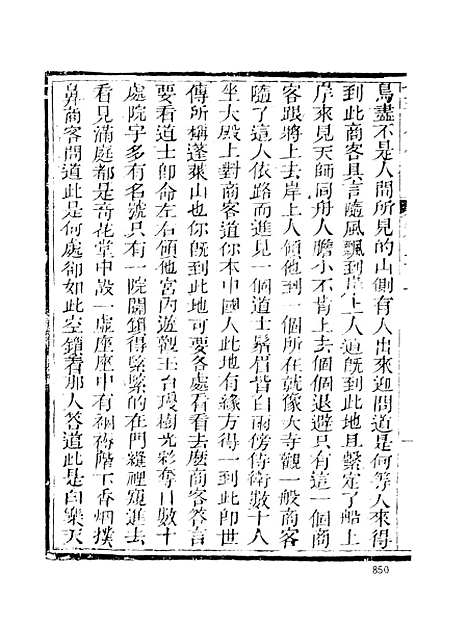 鳥盡不是人間所見的山側有人出來迎問道是何等人來得
到此商客具言隨風飄到岸上人道旣到此地且繫定了船上
岸來見天師同舟人膽小不肯上去個個退避只有這一個商
客跟將上去岸上人領他到一個所在就像大寺觀一般商客
隨了這人依路而進見一個道士鬚眉皆白兩傍侍衛數十人
坐大殿上對商客道你本中國人此地有緣方得一到此卽世
傳所稱蓬萊山也你旣到此地可要各處看看去麽商客答言
要看道士卽命左右領他宮內遊觀玉臺瓊樹光彩奪目數十
處院宇多有名號只有一院關鎖得緊緊的在門縫裡窺進去
看見滿庭都是奇花堂中設一虛座座中有裀褥階下香烟撲
鼻商客問道此是何處卻如此空鎖着那人答道此是白樂天
850